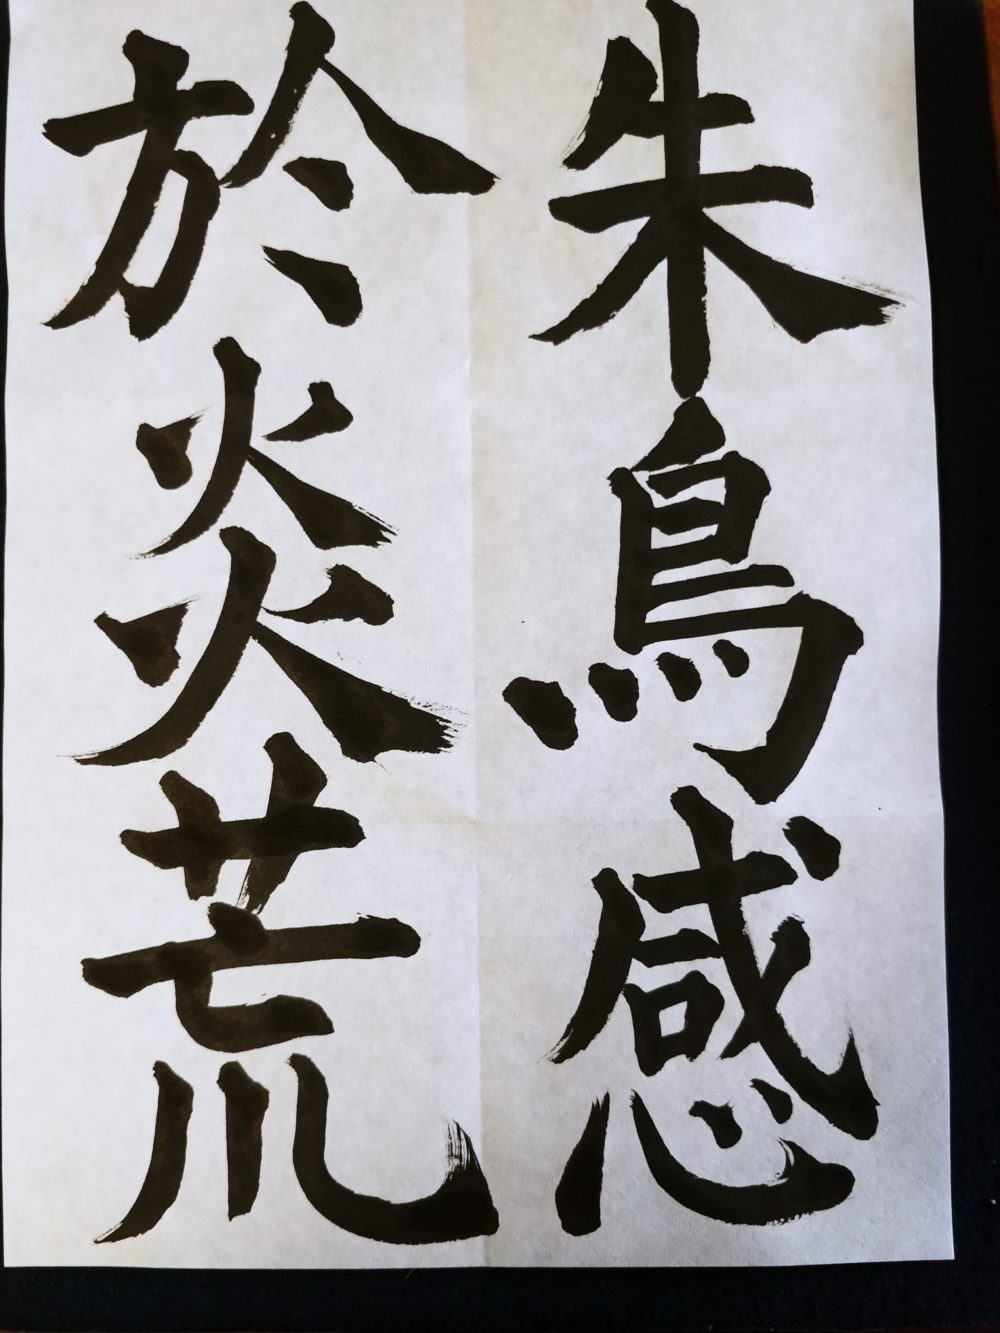 朱鳥感
於炎荒